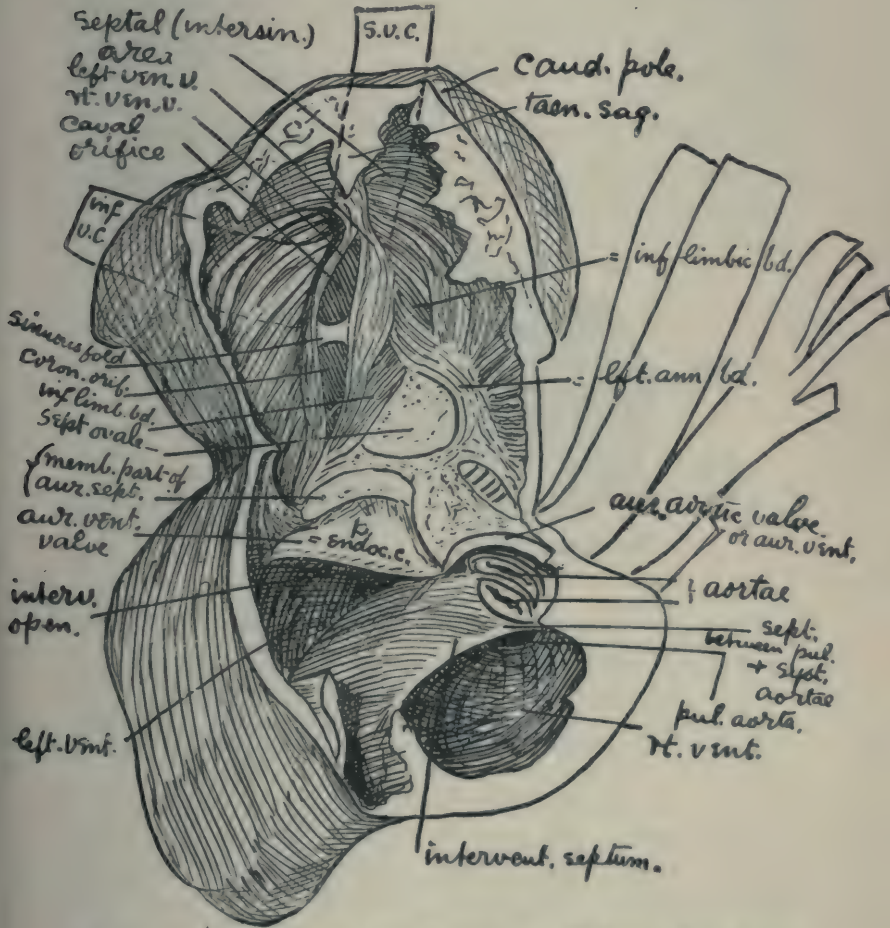 septal (intersin.)
area
left ven. v.
rt. ven. v.
caval
orifice
S.V.C.
caud. pole.
taen. sag.
inf
V.C
= inf limbic bd.
sinuous fold
coron. orif.
inf limb. bd.
sept ovale
= lft. ann bd.
{memb. part of
aur. sept.
aur. vent.
valve
p
= endoc. c.
aur. aortic valve
or aur. vent.
interv.
open.
} aortae
sept.
between pul.
+ sept.
aortae
left. vent.
pul. aorta.
rt. vent.
intervent. septum.